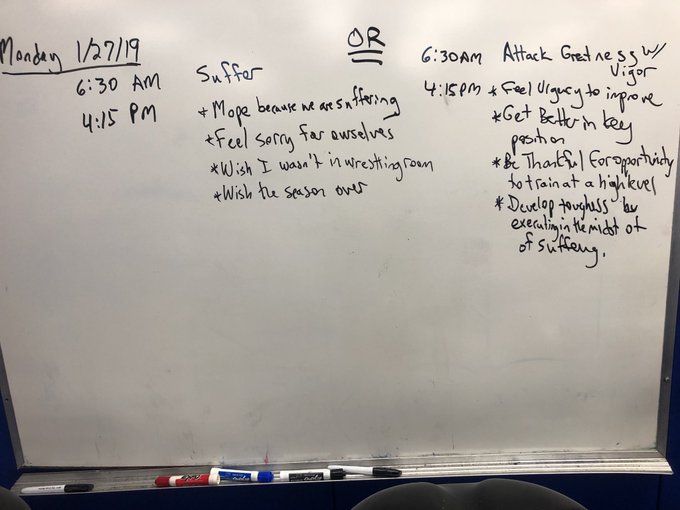 Monday 1/27/19
6:30 AM
4:15 PM
Suffer
* Mope because we are suffering
* Feel sorry for ourselves
* Wish I wasn't in wrestling room
* Wish the season over
OR
6:30 AM Attack Greatness w/
Vigor
4:15 PM * Feel Urgency to improve
* Get Better in key
position
* Be Thankful For opportunity
to train at a high level
* Develop toughness by
executing in the midst of
of suffering.